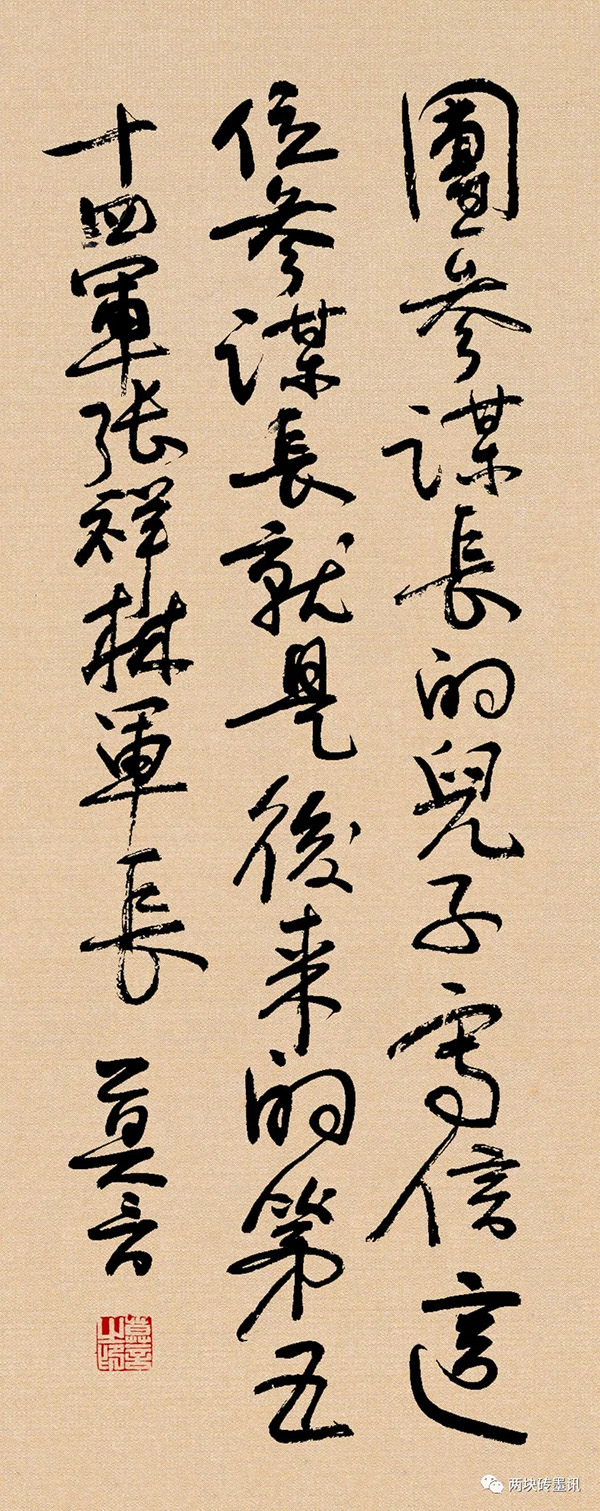 團參謀長的兒子寫信這
位參謀長就是後来的第五
十四軍张祥林軍長
莫言
莫言之印
两块砖墨讯